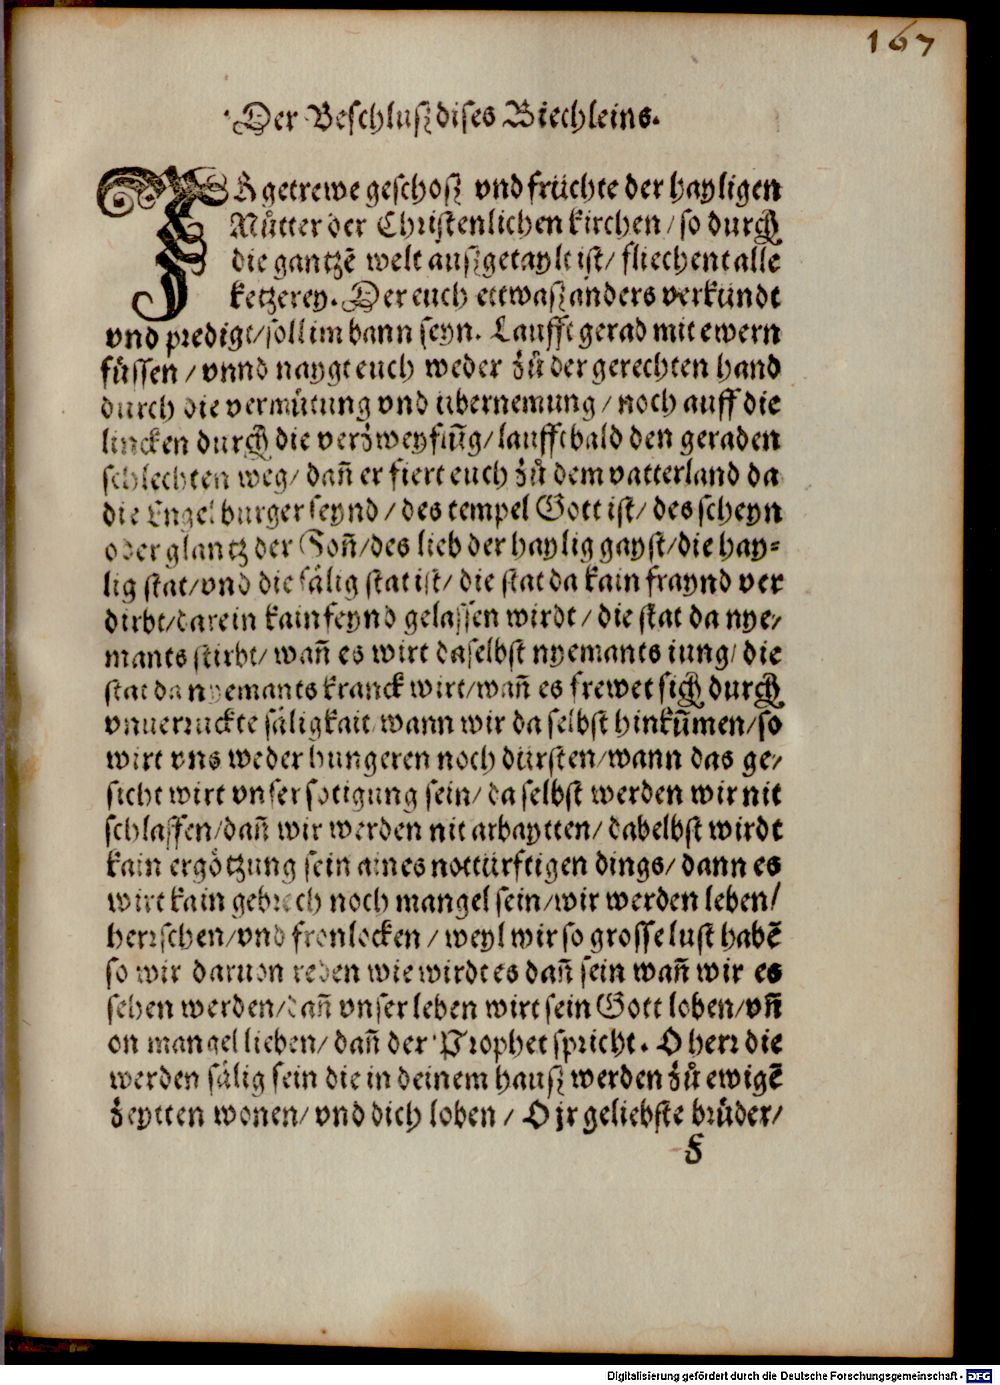 167
Der Beschlusz dises Biechleins.
JR getrewe geschosz vnd früchte der hayligen
Můtter der Christenlichen kirchen / so durch
die gantzẽ welt auszgetaylt ist / fliechent alle
ketzerey. Der euch ettwasz anders verkündt
vnd predigt / soll im bann seyn. Laufft gerad mit ewern
füssen / vnnd naygt euch weder zů der gerechten hand
durch die vermůtung vnd übernemung / noch auff die
lincken durch die verzweyflũg / laufft bald den geraden
schlechten weg / dañ er fiert euch zů dem vatterland da
die Engel burger seynd / des tempel Gott ist / des scheyn
oder glantz der Soñ / des lieb der haylig gayst / die hay-
lig stat / vnd die sälig stat ist / die stat da kain fraynd ver
dirbt / darein kain feynd gelassen wirdt / die stat da nye /
mants stirbt / wañ es wirt daselbst nyemants iung / die
stat da nyemants kranck wirt / wañ es frewet sich durch
vnuerruckte säligkait / wann wir da selbst hinkũmen / so
wirt vns weder hungeren noch dürsten / wann das ge /
sicht wirt vnser sotigung sein / da selbst werden wir nit
schlaffen / dañ wir werden nit arbaytten / dabelbst wirdt
kain ergötzung sein aines nottürftigen dings / dann es
wirt kain gebrech noch mangel sein / wir werden leben /
herrschen / vnd fronlocken / weyl wir so grosse lust habẽ
so wir daruon reden wie wirdt es dañ sein wañ wir es
sehen werden / dañ vnser leben wirt sein Gott loben / vñ
on mangel lieben / dañ der Prophet spricht. O herr die
werden sälig sein die in deinem hausz werden zů ewigẽ
zeytten wonen / vnd dich loben / O jr geliebste brüder /
F
Digitalisierung gefördert durch die Deutsche Forschungsgemeinschaft - DFG